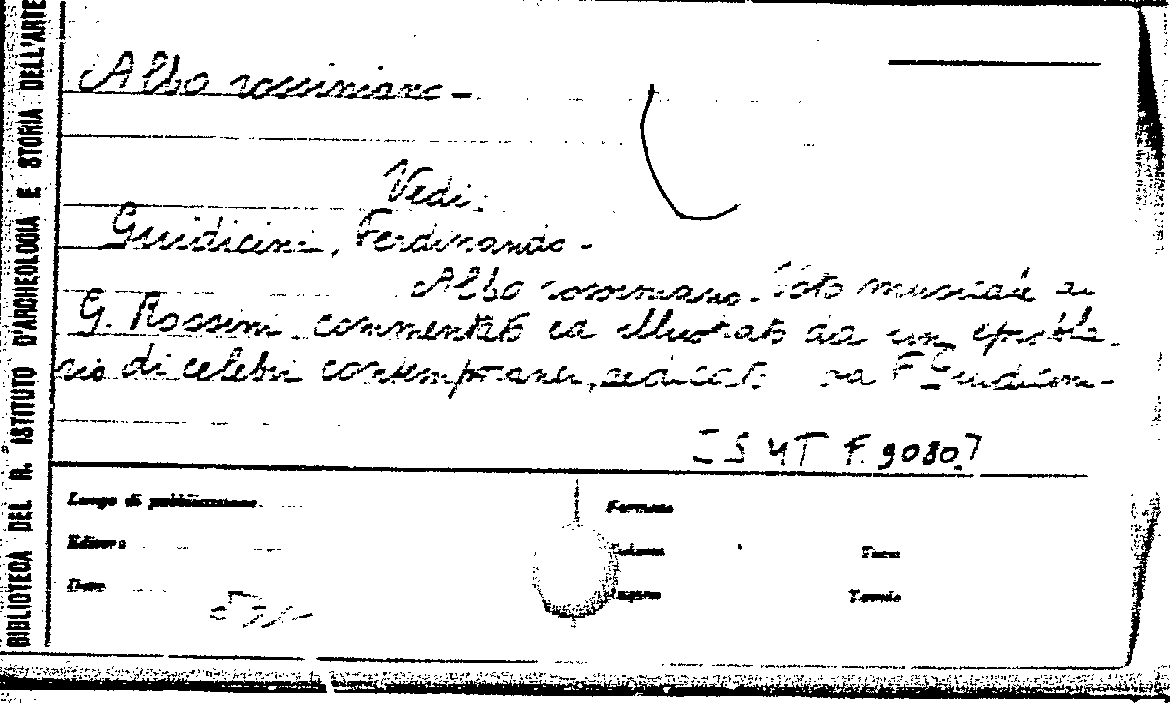 BIBLIOTECA DEL R. ISTITUTO D'ARCHEOLOGIA E STORIA DELL'ARTE
Albo rossiniano -
Vedi:
Guidicini, Ferdinando -
Albo rossiniano. Voto musicale a
G. Rossini commentato ed illustrato da un epistola-
rio di celebri contemporanei, dedicato da F. Guidicini -
F. 9080.7
Luogo di pubblicazione
Editore
Data
Formato
Volumi
Tavv.
Pagine
Tavole